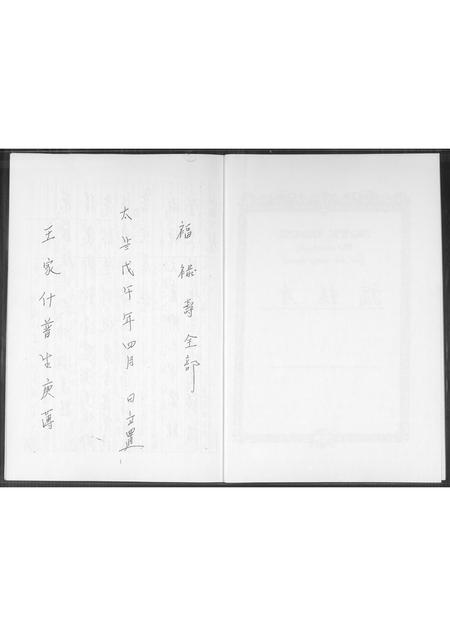 福祿壽全部
太歲戊午年四月 日立置
王家什普生庚薄